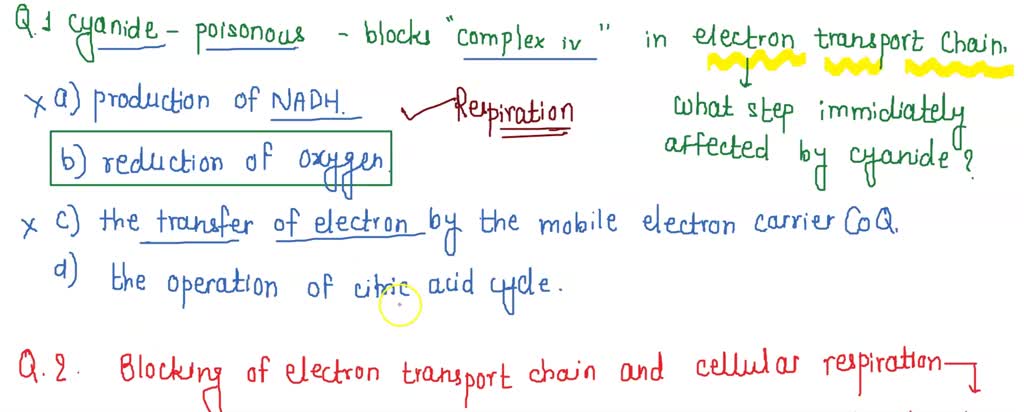 Q.1 Cyanide - poisonous - blocks "complex iv" in electron transport chain.
x a) production of NADH. ✓ Respiration
what step immidiately
affected by cyanide?
b) reduction of oxygen.
x c) the transfer of electron by the mobile electron carrier CoQ.
d) the operation of citric acid cycle.
Q.2. Blocking of electron transport chain and cellular respiration